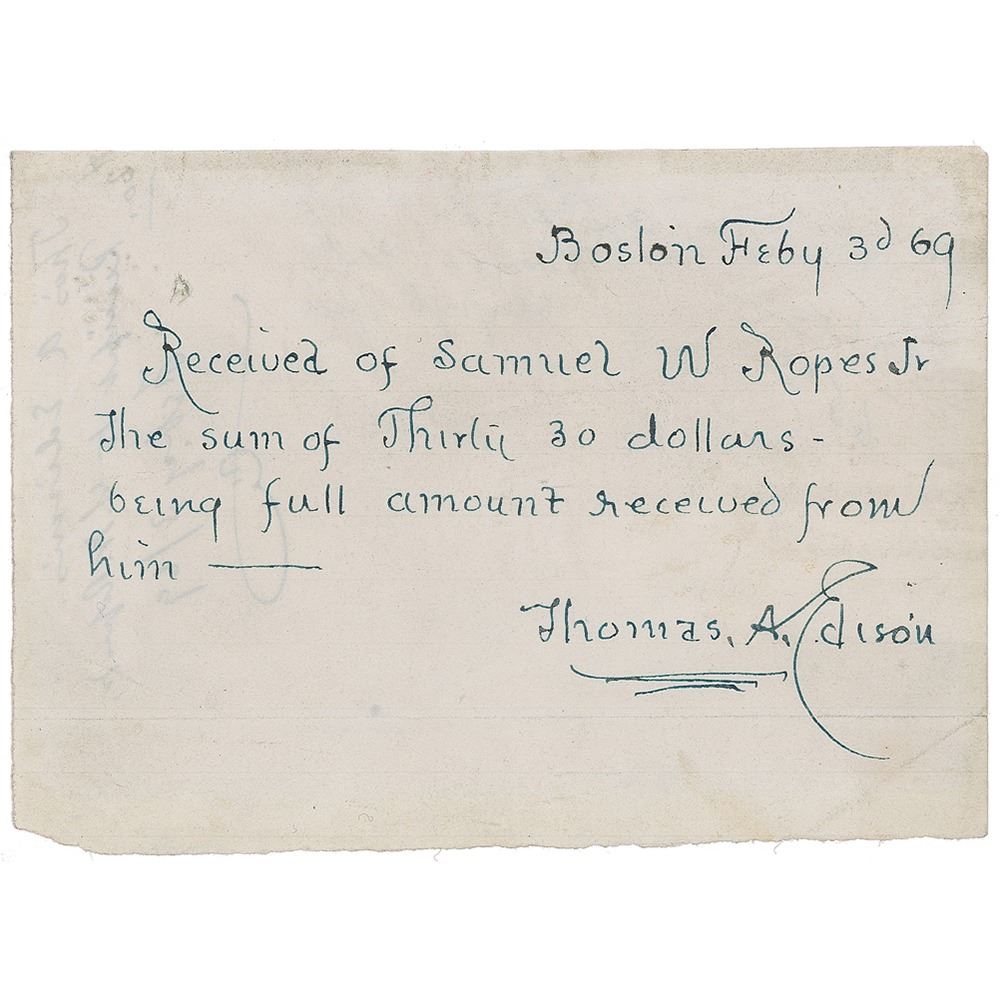 Boston Feby 3d 69
Received of Samuel W Ropes Jr
The sum of Thirty 30 dollars -
being full amount received from
him ———
Thomas. A. Edison